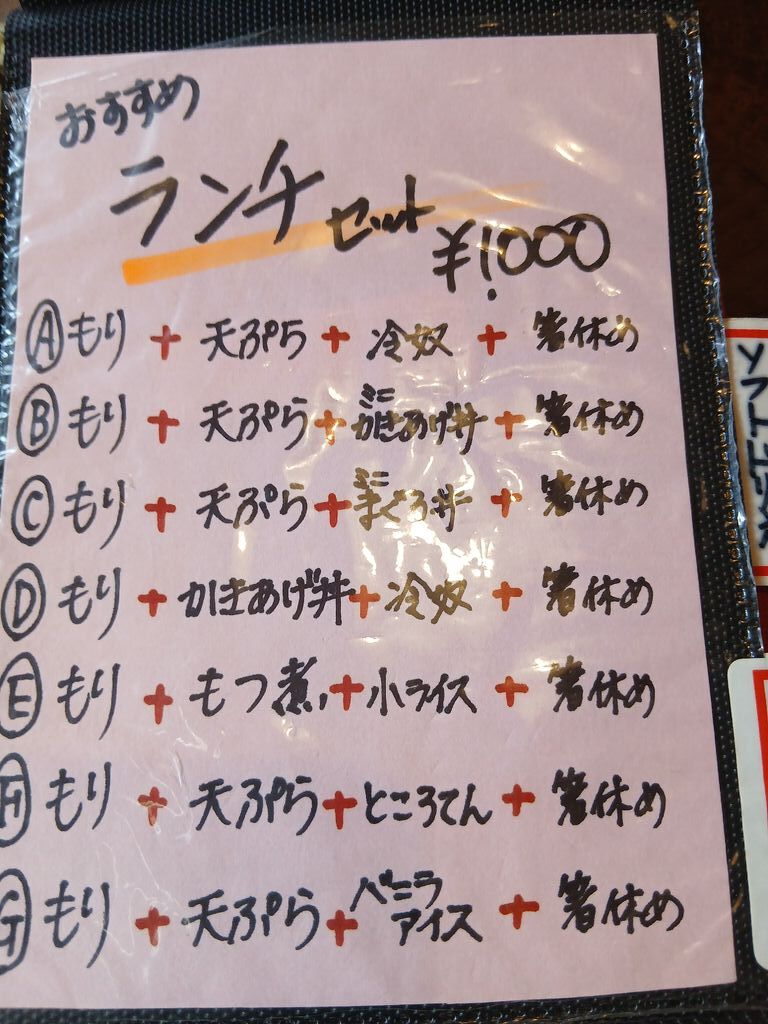 おすすめ
ランチセット
¥1,000
Ⓐもり + 天ぷら + 冷奴 + 箸休め
Ⓑもり + 天ぷら + ミニかきあげ丼 + 箸休め
Ⓒもり + 天ぷら + ミニまぐろ丼 + 箸休め
Ⓓもり + かきあげ丼 + 冷奴 + 箸休め
Ⓔもり + もつ煮 + 小ライス + 箸休め
Ⓕもり + 天ぷら + ところてん + 箸休め
Ⓖもり + 天ぷら + バニラアイス + 箸休め
ソフトドリンク